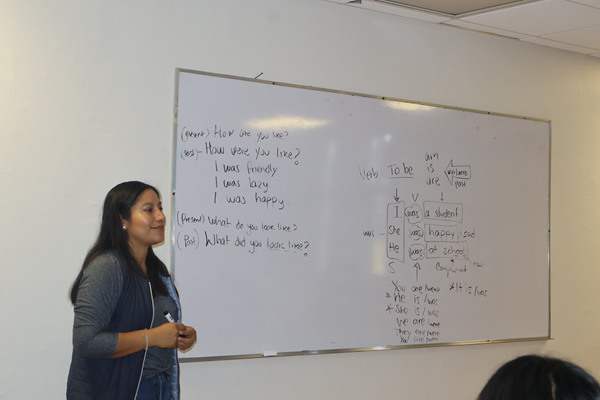 (Present) How are you like?
(Past) - How were you like?
I was friendly
I was lazy
I was happy
(Present) What do you look like?
(Past) What did you look like?
Verb To be
am
is
are
was/were
past
V
I was a student
was - She was happy sad
He was at school
S
Complement
You are/were
* He is/was
* She is/was
We are/were
They are/were
You are/were
* It is/was